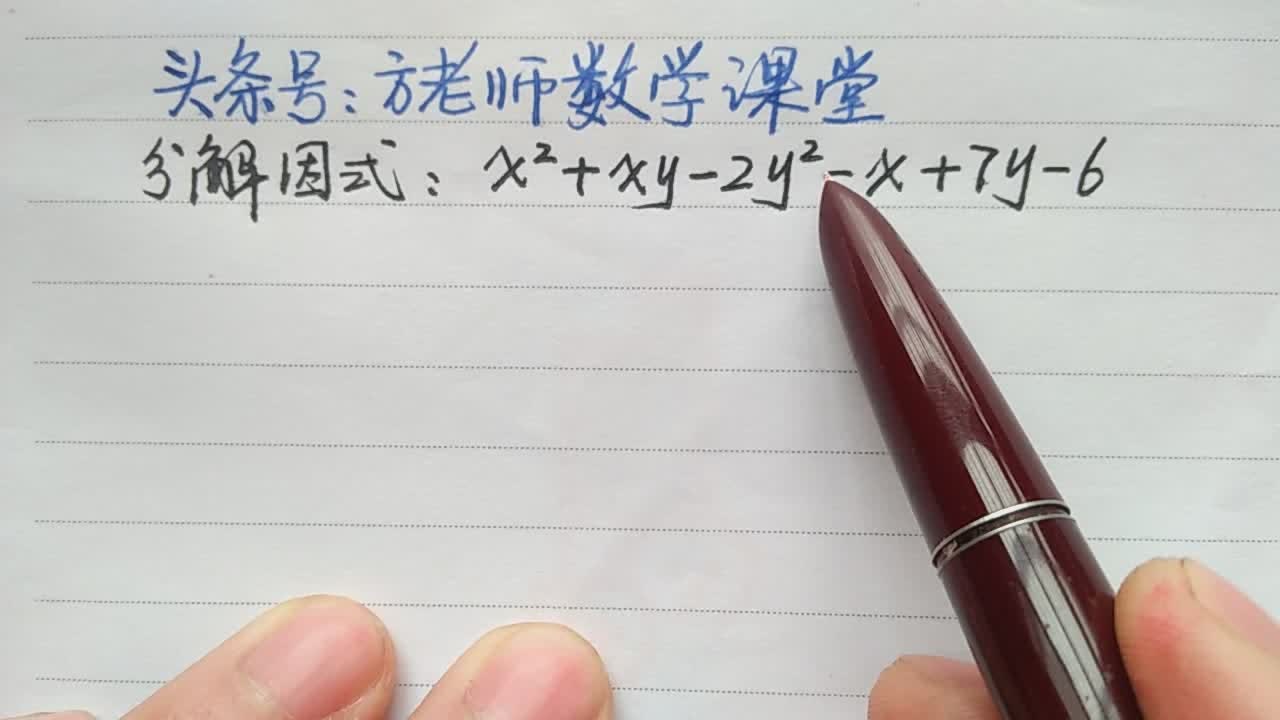 头条号：方老师数学课堂
分解因式：x²+xy-2y²-x+7y-6